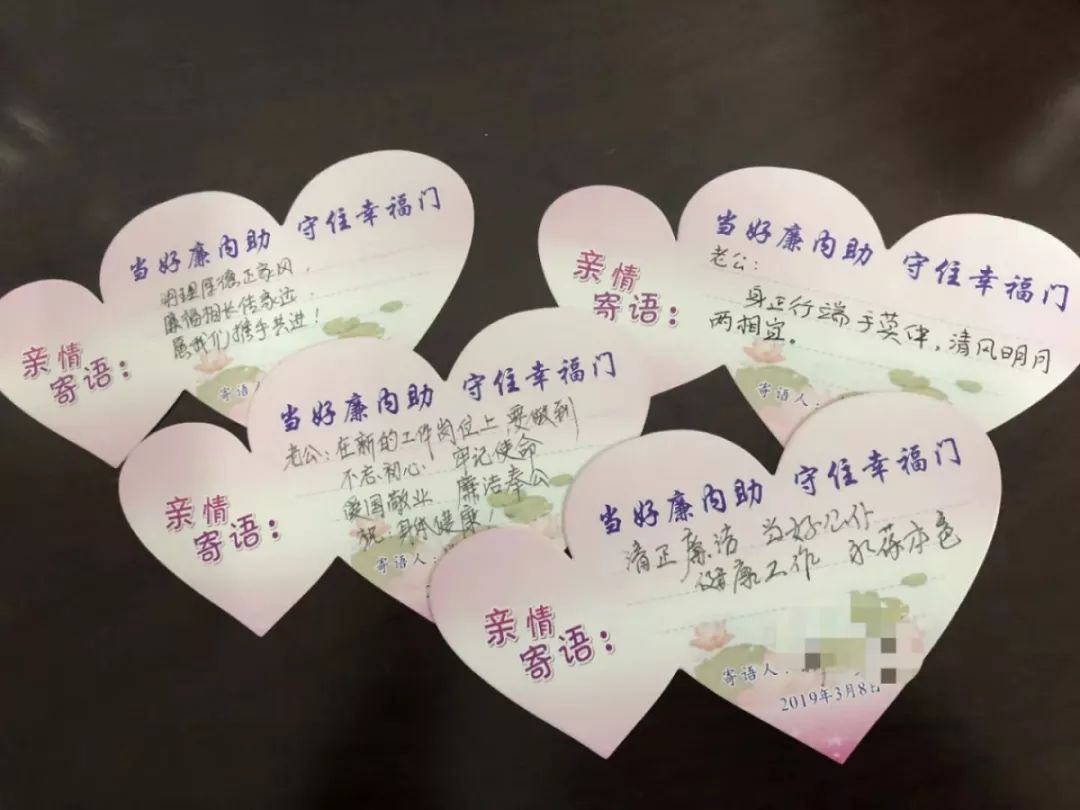 当好廉内助 守住幸福门
明理厚德正家风，
廉福相长传家远，
愿我们携手共进！
亲情
寄语：
寄语人
当好廉内助 守住幸福门
老公：
身正行端于英伟，清风明月
两相宜。
亲情
寄语：
寄语人：
当好廉内助 守住幸福门
老公：在新的工作岗位上 要做到
不忘初心 牢记使命
爱国敬业 廉洁奉公
祝：身体健康
亲情
寄语：
寄语人：
当好廉内助 守住幸福门
清正廉洁 当好公仆
健康工作 永葆本色
亲情
寄语：
寄语人：
2019年3月8日